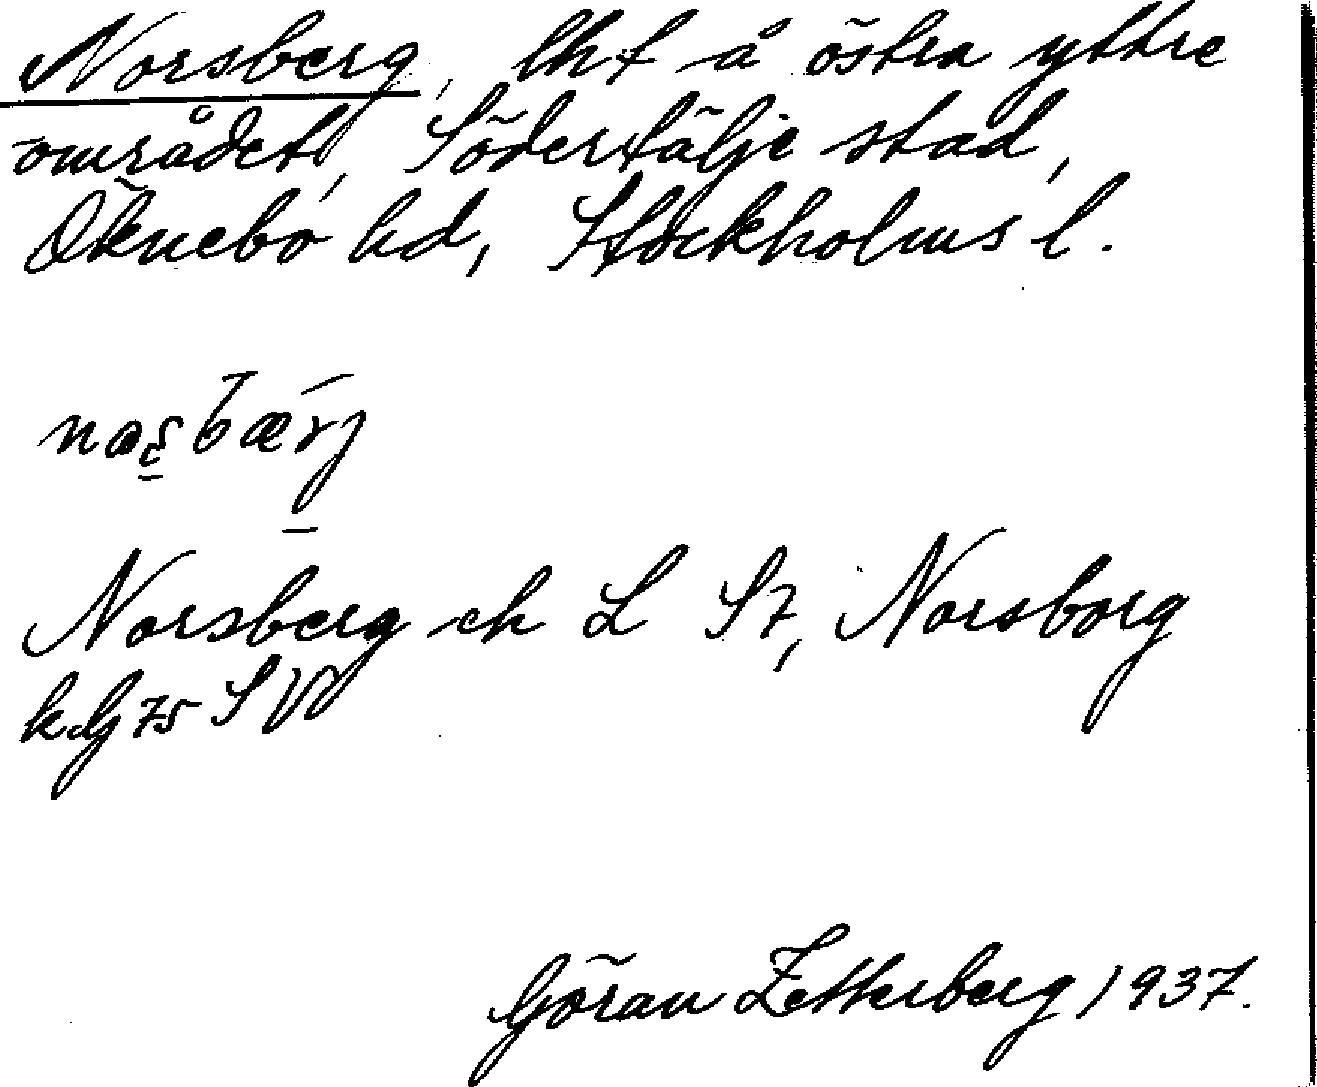 Norsberg, lht å östra yttre
området, Södertälje stad,
Öknebo hd, Stockholms l.
Norsberg ek L S7, Norsborg
k.Bj 75 S V
Göran Zetterberg 1937.